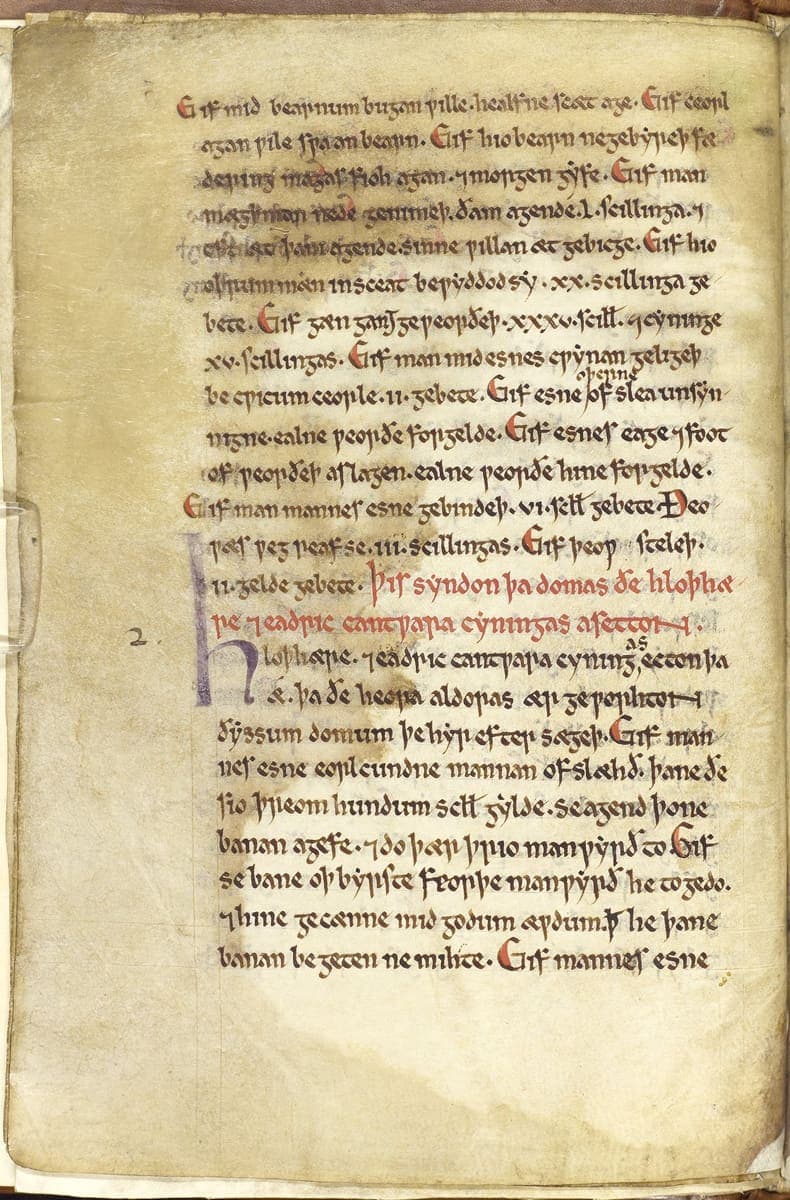 Gif mid bearnum bugan ƿille. healfne scæt age. Gif ceorl
agan ƿile sƿa an bearn. Gif hio bearn ne gebyreþ fæ
dering magas fioh agan. ⁊ morgen gyfe. Gif man
mægþmon nede genimeþ. ðam agende .l. scillinga. ⁊
eft æt þam agende sinne ƿillan æt gebicge. Gif hio
oþrum mæn in sceat beƿyddod sy .xx. scillinga ge
bete. Gif gængang geƿeorðeþ .xxxv. scill. ⁊ cyninge
xv. scillingas. Gif man mid esnes cƿynan geligeþ
be cƿicum ceorle .ii. gebete. Gif esne oþerne ofslea unsyn
nigne. ealne ƿeorðe forgelde. Gif esnes eage ⁊ foot
of ƿeorðeþ aslagen. ealne ƿeorðe hine forgelde.
Gif man mannes esne gebindeþ .vi. scll gebete. Ðeo
ƿæs ƿegreaf se .iii. scillingas. Gif þeoƿ steleþ.
ii. gelde gebete. Þis syndon þa domas ðe hloþhæ
re ⁊ eadric cantƿara cyningas asetton.
2. hloþhære. ⁊ eadric cantƿara cyningas, ecton þa
æ. þa ðe heora aldoras ær geƿorhton
ðyssum domum þe hyr efter sægeþ. Gif man
nes esne eorlcundne mannan ofslæhð. þane ðe
sio þreom hundum scll gylde. se agend þone
banan agefe. ⁊ do þær þrio manƿyrð to Gif
se bane oþbyrste feorþe manƿyrð he to gedo.
⁊ hine gecænne mid godum æƿdum. ꝥ he þane
banan begeten ne mihte. Gif mannes esne